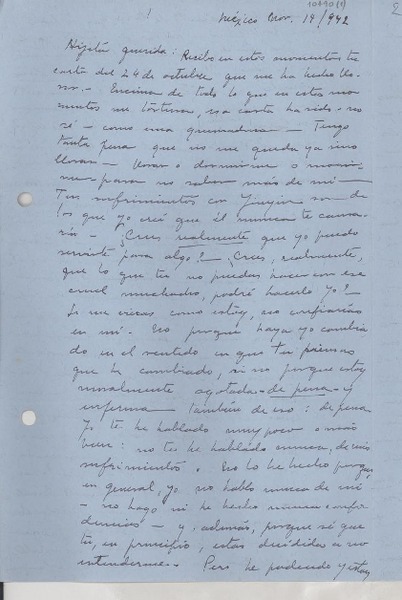 10490 (1)
México Nov. 19/942
Hijita querida: Recibo en estos momentos tu
carta del 24 de octubre que me ha hecho llo-
rar. – Encima de todo lo que en estos mo-
mentos me tortura, esa carta ha sido – no
sé – como una quemadura – Tengo
tanta pena que no me queda ya sino
llorar – Llorar o dormirme o morir-
me para no saber más de mí –
Tus sufrimientos con Yinyin son de
los que yo creí que él nunca te causa-
ría – ¿Crees realmente que yo puedo
servirte para algo? – ¿Crees, realmente,
que lo que tú no puedas hacer con ese
cruel muchacho, podré hacerlo yo? –
Si me vieras como estoy, no confiarías
en mí. No porque haya yo cambia-
do en el sentido en que tú piensas
que he cambiado, si no porque estoy
moralmente agotada – de pena – y
enferma – también de eso: de pena
Yo te he hablado muy poco o más
bien: no te he hablado nunca, de mis
sufrimientos. No lo he hecho porque,
en general, yo no hablo nunca de mí
– no hago ni he hecho nunca confi-
dencias – y, además, porque sé que
tú, en principio, estás decidida a no
entenderme – Pero he padecido y estoy